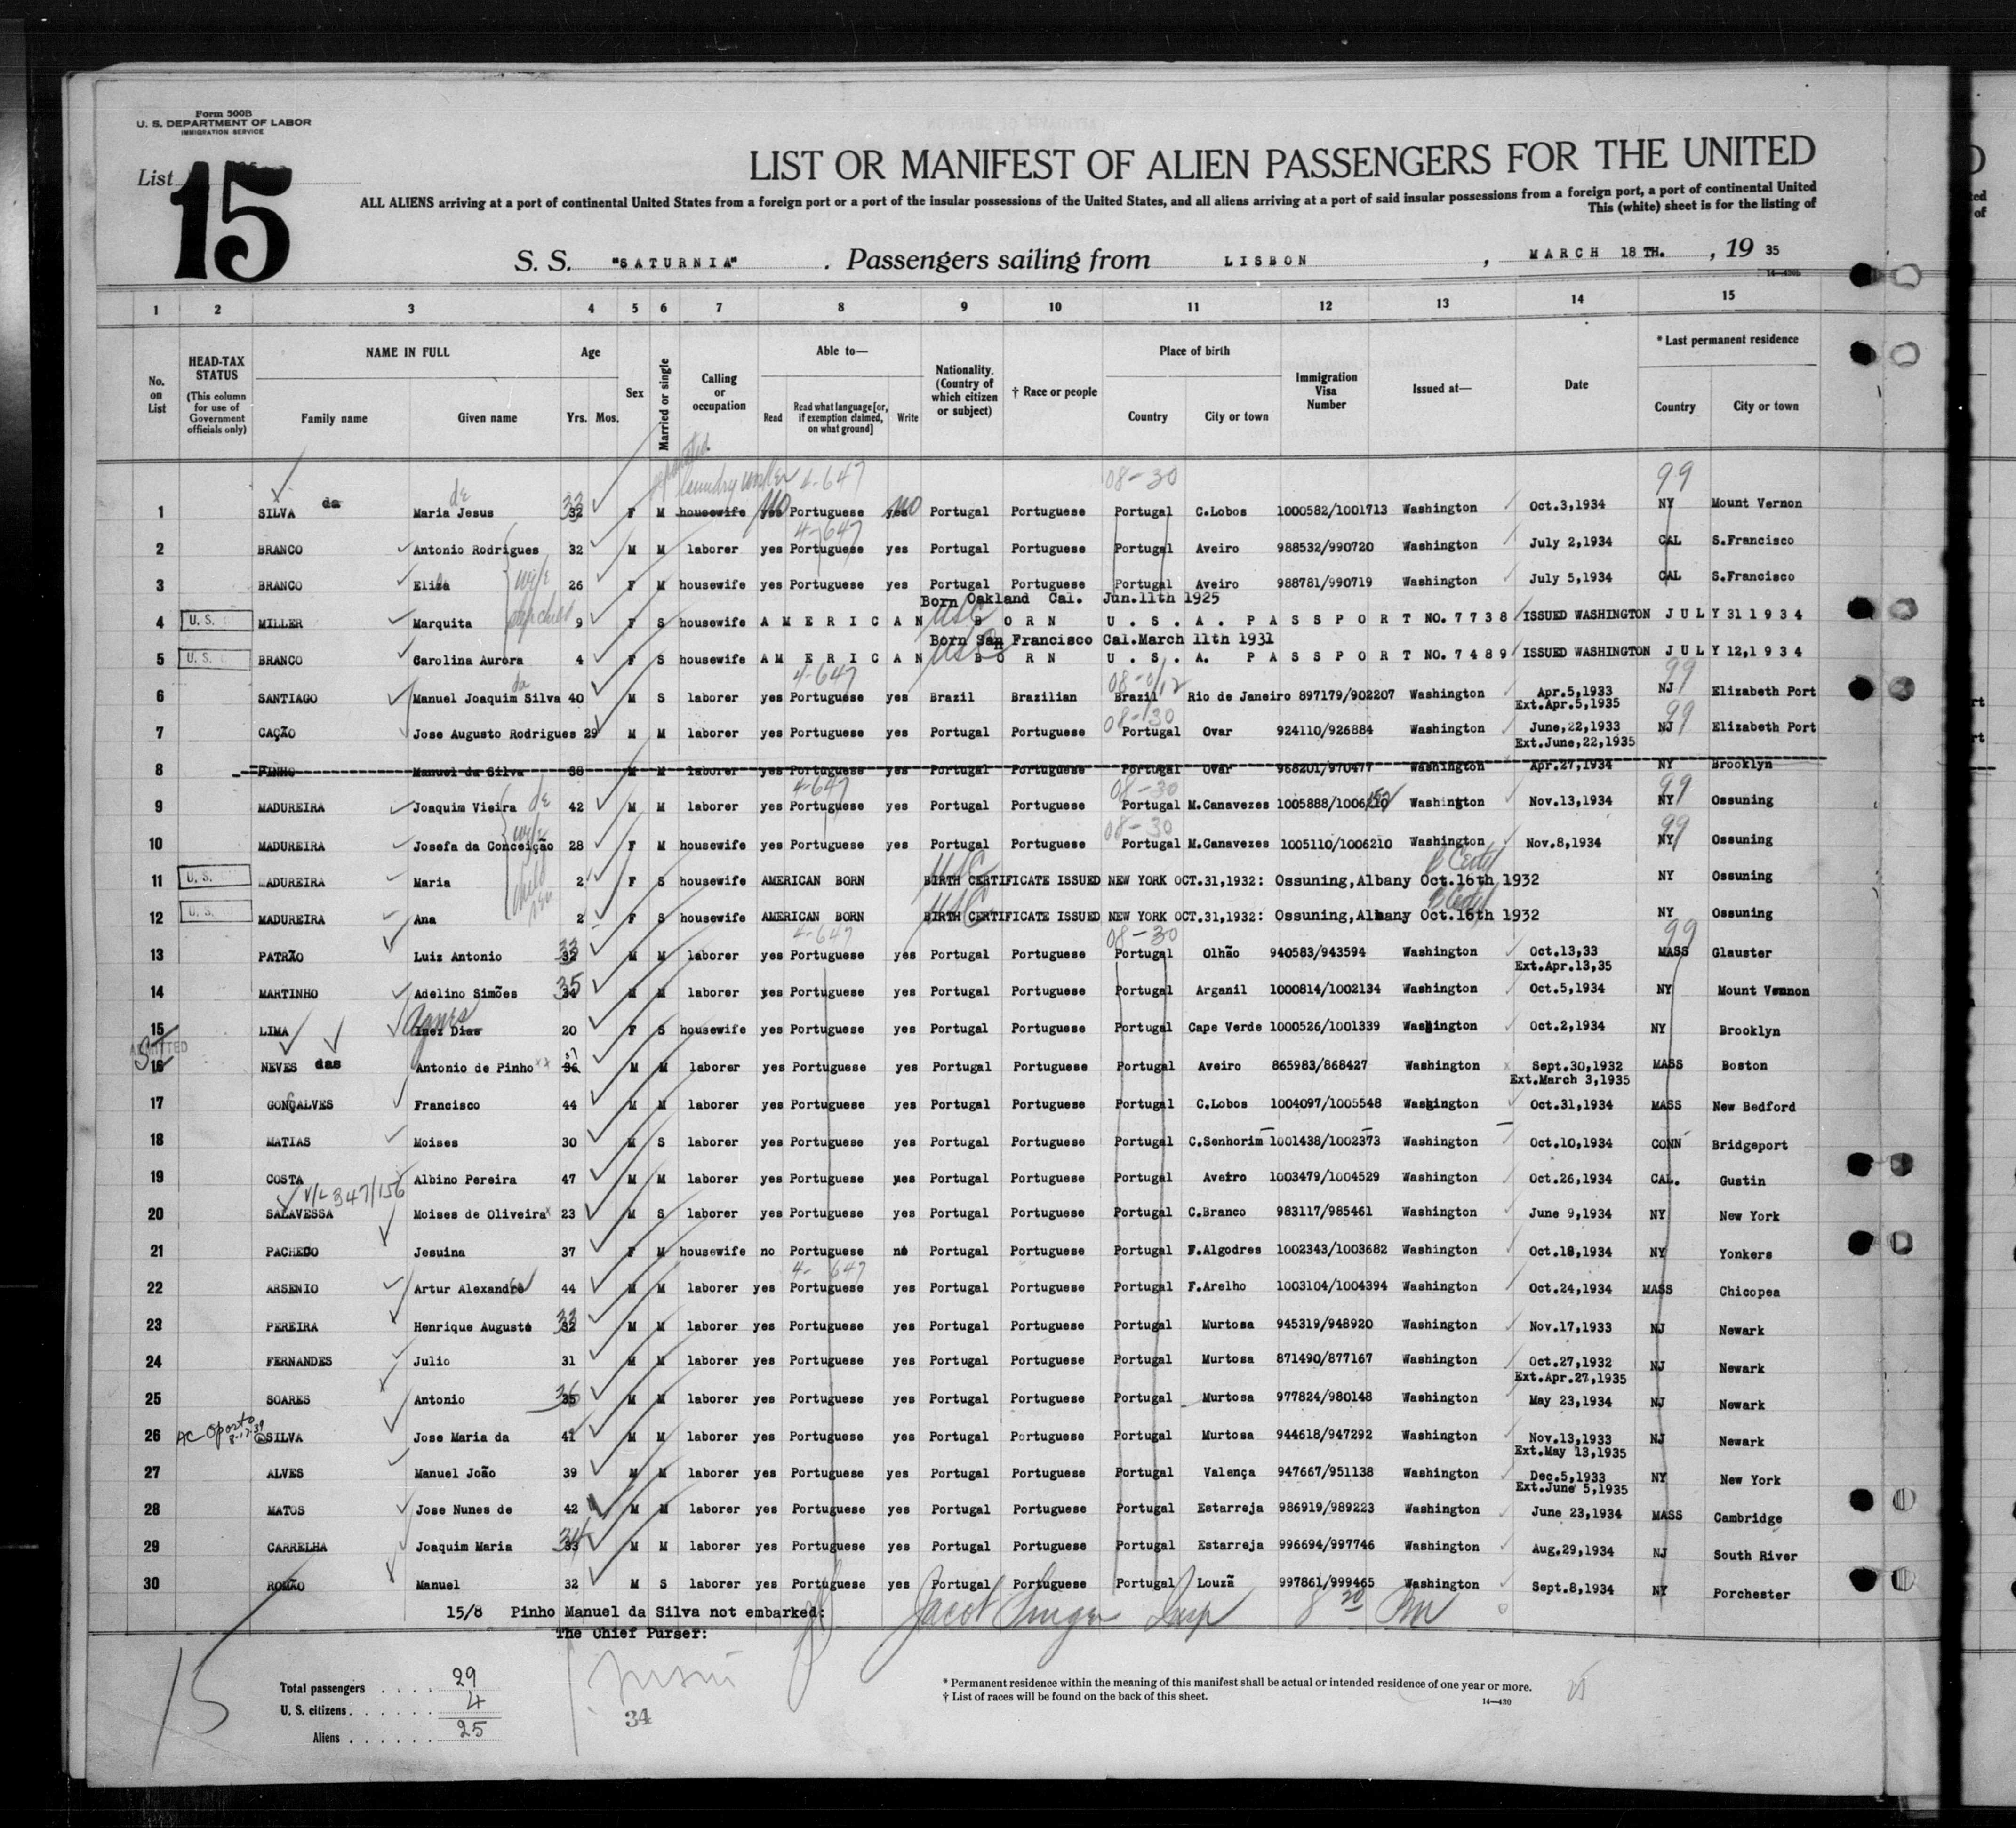 Form 500B
U. S. DEPARTMENT OF LABOR
IMMIGRATION SERVICE
List 15
LIST OR MANIFEST OF ALIEN PASSENGERS FOR THE UNITED
ALL ALIENS arriving at a port of continental United States from a foreign port or a port of the insular possessions of the United States, and all aliens arriving at a port of said insular possessions from a foreign port, a port of continental United
This (white) sheet is for the listing of
S. S. "SATURNIA" . Passengers sailing from LISBON , MARCH 18TH. , 19 35
1 2 3 4 5 6 7 8 9 10 11 12 13 14 15
No. on List
HEAD-TAX STATUS
(This column for use of Government officials only)
NAME IN FULL
Family name Given name
Age
Yrs. Mos.
Sex
Married or single
Calling or occupation
Able to—
Read
Read what language [or, if exemption claimed, on what ground]
Write
Nationality. (Country of which citizen or subject)
† Race or people
Place of birth
Country City or town
Immigration Visa Number
Issued at—
Date
* Last permanent residence
Country City or town
laundry 4-647 08-30 99
1 SILVA da Maria de Jesus 32 33 F M housewife yes no Portuguese yes no Portugal Portuguese Portugal C.Lobos 1000582/1001713 Washington Oct.3,1934 NY Mount Vernon
4-647
2 BRANCO Antonio Rodrigues 32 M M laborer yes Portuguese yes Portugal Portuguese Portugal Aveiro 988532/990720 Washington July 2,1934 CAL S.Francisco
3 BRANCO Elisa wife 26 F M housewife yes Portuguese yes Portugal Portuguese Portugal Aveiro 988781/990719 Washington July 5,1934 CAL S.Francisco
Born Oakland Cal. Jun.11th 1925
4 U. S. MILLER Marquita stepchild 9 F S housewife AMERICAN USC BORN U.S.A. PASSPORT NO. 7738 ISSUED WASHINGTON JULY 31 1934
Born San Francisco Cal.March 11th 1931
5 U. S. BRANCO Carolina Aurora 4 F S housewife AMERICAN USC BORN U.S.A. PASSPORT NO. 7489 ISSUED WASHINGTON JULY 12,1934
4-647 99
6 SANTIAGO Manuel Joaquim da Silva 40 M S laborer yes Portuguese yes Brazil Brazilian Brazil Rio de Janeiro 897179/902207 Washington Apr.5,1933 NJ Elizabeth Port
Ext.Apr.5,1935
08-30 99
7 CAÇÃO Jose Augusto Rodrigues 29 M M laborer yes Portuguese yes Portugal Portuguese Portugal Ovar 924110/926884 Washington June,22,1933 NJ Elizabeth Port
Ext.June,22,1935
8 PINHO Manuel da Silva 38 M M laborer yes Portuguese yes Portugal Portuguese Portugal Ovar 968201/970477 Washington Apr.27,1934 NY Brooklyn
4-647 08-30 99
9 MADUREIRA Joaquim Vieira de 42 M M laborer yes Portuguese yes Portugal Portuguese Portugal M.Canavezes 1005888/1006210 Washington Nov.13,1934 NY Ossuning
08-30 99
10 MADUREIRA Josefa da Conceição wife 28 F M housewife yes Portuguese yes Portugal Portuguese Portugal M.Canavezes 1005110/1006210 Washington Nov.8,1934 NY Ossuning
USC
11 U. S. MADUREIRA Maria 2 F S housewife AMERICAN BORN BIRTH CERTIFICATE ISSUED NEW YORK OCT.31,1932: Ossuning,Albany Oct.16th 1932 NY Ossuning
USC
12 U. S. MADUREIRA Ana 2 F S housewife AMERICAN BORN BIRTH CERTIFICATE ISSUED NEW YORK OCT.31,1932: Ossuning,Albany Oct.16th 1932 NY Ossuning
4-647 08-30 99
13 PATRÃO Luiz Antonio 32 33 M M laborer yes Portuguese yes Portugal Portuguese Portugal Olhão 940583/943594 Washington Oct.13,33 MASS Glauster
Ext.Apr.13,35
14 MARTINHO Adelino Simões 34 35 M M laborer yes Portuguese yes Portugal Portuguese Portugal Arganil 1000814/1002134 Washington Oct.5,1934 NY Mount Vennon
Agnes
15 LIMA Inez Dias 20 F S housewife yes Portuguese yes Portugal Portuguese Portugal Cape Verde 1000526/1001339 Washington Oct.2,1934 NY Brooklyn
ADMITTED
16 NEVES das Antonio de Pinho 36 37 M M laborer yes Portuguese yes Portugal Portuguese Portugal Aveiro 865983/868427 Washington Sept.30,1932 MASS Boston
Ext.March 3,1935
17 GONÇALVES Francisco 44 M M laborer yes Portuguese yes Portugal Portuguese Portugal C.Lobos 1004097/1005548 Washington Oct.31,1934 MASS New Bedford
18 MATIAS Moises 30 M S laborer yes Portuguese yes Portugal Portuguese Portugal C.Senhorim 1001438/1002373 Washington Oct.10,1934 CONN Bridgeport
19 COSTA Albino Pereira 47 M M laborer yes Portuguese yes Portugal Portuguese Portugal Aveiro 1003479/1004529 Washington Oct.26,1934 CAL. Gustin
V/L 347/156
20 SALAVESSA Moises de Oliveira 23 M S laborer yes Portuguese yes Portugal Portuguese Portugal C.Branco 983117/985461 Washington June 9,1934 NY New York
21 PACHECO Jesuina 37 F M housewife no Portuguese no Portugal Portuguese Portugal F.Algodres 1002343/1003682 Washington Oct.18,1934 NY Yonkers
4-647
22 ARSENIO Artur Alexandre 44 M M laborer yes Portuguese yes Portugal Portuguese Portugal F.Arelho 1003104/1004394 Washington Oct.24,1934 MASS Chicopea
23 PEREIRA Henrique Augusto 32 33 M M laborer yes Portuguese yes Portugal Portuguese Portugal Murtosa 945319/948920 Washington Nov.17,1933 NJ Newark
24 FERNANDES Julio 31 M M laborer yes Portuguese yes Portugal Portuguese Portugal Murtosa 871490/877167 Washington Oct.27,1932 NJ Newark
Ext.Apr.27,1935
25 SOARES Antonio 35 36 M M laborer yes Portuguese yes Portugal Portuguese Portugal Murtosa 977824/980148 Washington May 23,1934 NJ Newark
AC Oporto
26 SILVA Jose Maria da 41 M M laborer yes Portuguese yes Portugal Portuguese Portugal Murtosa 944618/947292 Washington Nov.13,1933 NJ Newark
Ext.May 13,1935
27 ALVES Manuel João 39 M M laborer yes Portuguese yes Portugal Portuguese Portugal Valença 947667/951138 Washington Dec.5,1933 NY New York
Ext.June 5,1935
28 MATOS Jose Nunes de 42 M M laborer yes Portuguese yes Portugal Portuguese Portugal Estarreja 986919/989223 Washington June 23,1934 MASS Cambridge
29 CARRELHA Joaquim Maria 33 34 M M laborer yes Portuguese yes Portugal Portuguese Portugal Estarreja 996694/997746 Washington Aug.29,1934 NJ South River
30 ROMÃO Manuel 32 M S laborer yes Portuguese yes Portugal Portuguese Portugal Louzã 997861/999465 Washington Sept.8,1934 NY Porchester
15/8 Pinho Manuel da Silva not embarked:
Jacob Singer Insp
The Chief Purser:
15
Total passengers . . . . 29
U. S. citizens . . . . . . 4
Aliens . . . . . . 25
34
* Permanent residence within the meaning of this manifest shall be actual or intended residence of one year or more.
† List of races will be found on the back of this sheet.
14—430